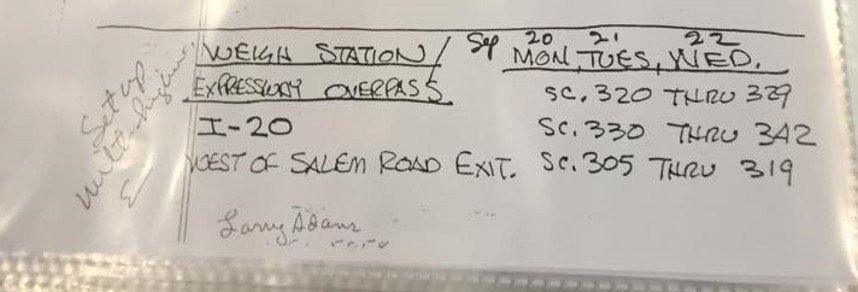 WEIGH STATION / Sep 20 21 22
MON, TUES, WED.
EXPRESSWAY OVERPASS SC. 320 THRU 329
I-20 SC. 330 THRU 342
WEST OF SALEM ROAD EXIT. SC. 305 THRU 319
Set up
Larry Adams